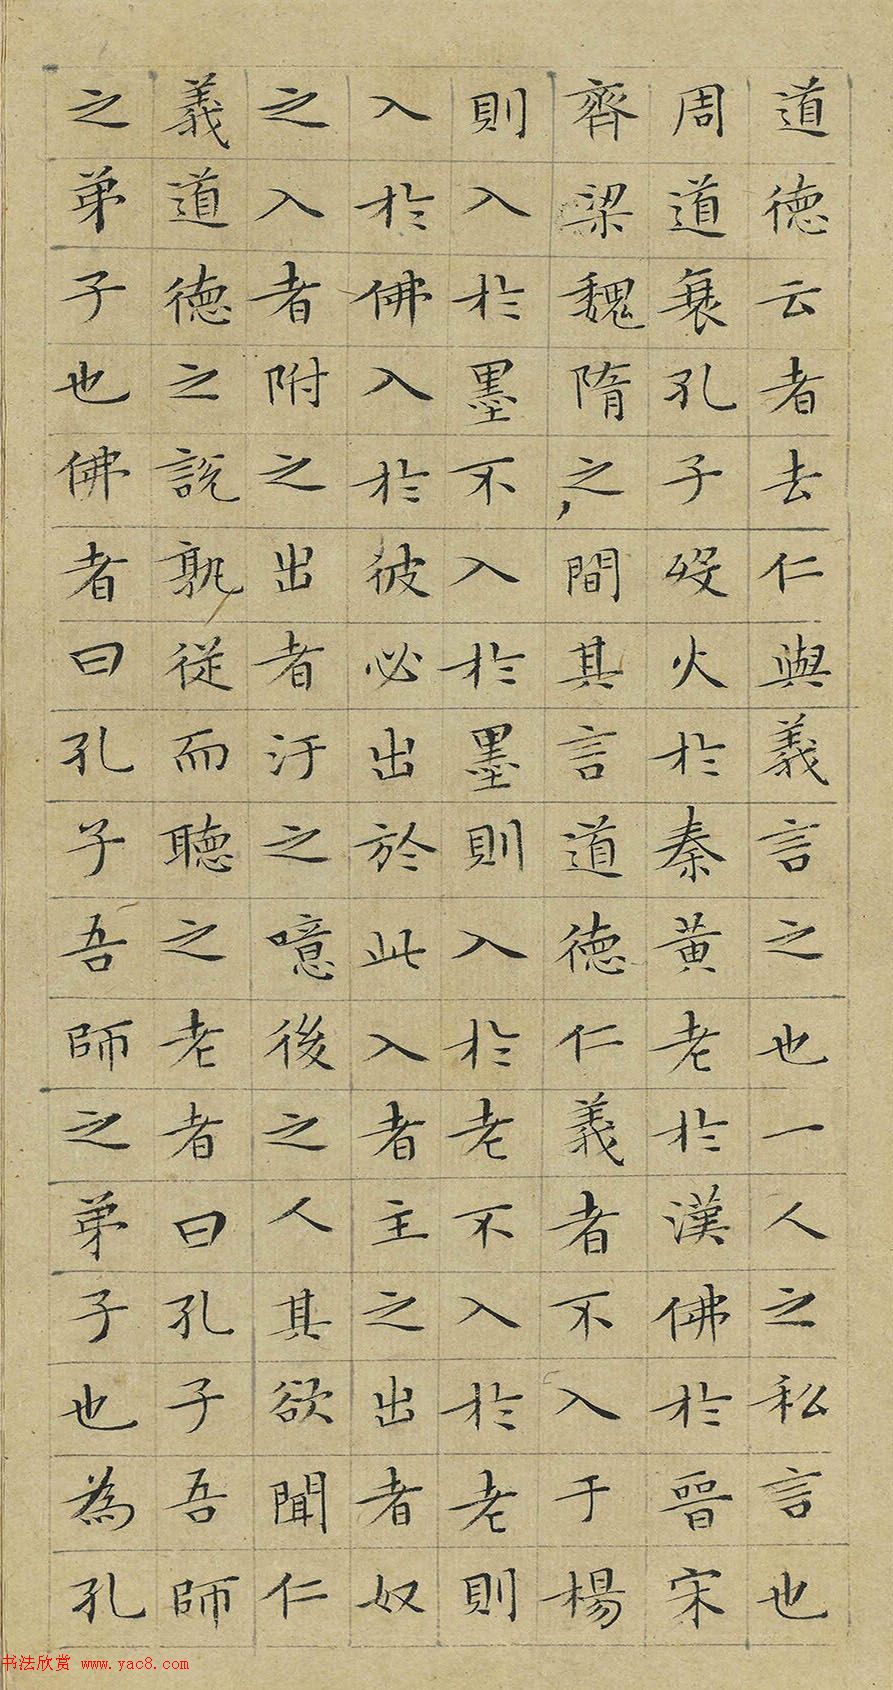 道德云者去仁與義言之也一人之私言也
周道衰孔子歿火於秦黃老於漢佛於晉宋
齊梁魏隋之間其言道德仁義者不入于楊
則入於墨不入於墨則入於老不入於老則
入於佛入於彼必出於此入者主之出者奴
之入者附之出者汙之噫後之人其欲聞仁
義道德之說孰從而聽之老者曰孔子吾師
之弟子也佛者曰孔子吾師之弟子也為孔
书法欣赏 www.yac8.com